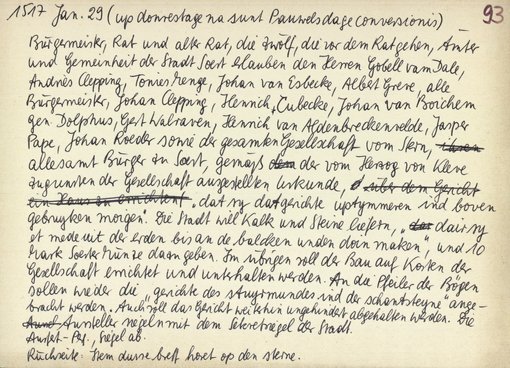 1517 Jan. 29 (up donrestage na sunt Pauwels dage conversionis) 93
Bürgermeister, Rat und alter Rat, die Zwölf, die vor dem Rat gehen, Ämter
und Gemeinheit der Stadt Soest erlauben den Herren Gobell vam Dale,
Andries Clepping, Tonies Menge, Johan van Esbecke, Albert Greve, alle
Bürgermeister, Johan Clepping, Hinrich Cubecke, Johan van Boichem
gen. Dolphus, Gert Walraven, Henrich van Aldenbreckenvelde, Jasper
Pape, Johan Roeder sowie der gesamten Gesellschaft vom Stern,
allesamt Bürger zu Soest, gemäß dem der vom Herzog von Kleve
zugunsten der Gesellschaft ausgestellten Urkunde, über dem Gericht
ein Haus zu errichten "dat sy dat gerichte uptymmeren ind boven
gebruyken morgen". Die Stadt will Kalk und Steine liefern, "dar dair sy
et mede uit der erden bis an de balcken unden doin maken", und 10
Mark Soester Münze dazu geben. Im übrigen soll der Bau auf Kosten der
Gesellschaft errichtet und unterhalten werden. An die Pfeiler der Bögen
sollen wieder die "gerichte des stuyrmundes ind der schantsteyne" ange-
bracht werden. Auch soll das Gericht weiterhin ungehindert abgehalten werden. Die
Aussteller siegeln mit dem Sekretsiegel der Stadt.
Ausf.-Perg., Siegel ab.
Rückseite: Item dusse breff horet op den sterne.